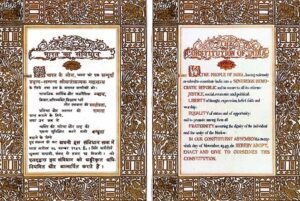 भारत का संविधान
हम भारत के लोग, भारत को एक सम्पूर्ण
प्रभुत्व-सम्पन्न लोकतंत्रात्मक गणराज्य
बनाने के लिए, तथा उसके समस्त नागरिकों को:
सामाजिक, आर्थिक और राजनैतिक न्याय,
विचार, अभिव्यक्ति, विश्वास, धर्म
और उपासना की स्वतंत्रता,
प्रतिष्ठा और अवसर की समता
प्राप्त कराने के लिए,
तथा उन सब में
व्यक्ति की गरिमा और राष्ट्र की
एकता सुनिश्चित करने वाली बन्धुता
बढ़ाने के लिए
दृढ़संकल्प होकर अपनी इस संविधान सभा में
आज तारीख 26 नवम्बर, 1949 ई०
को एतद्द्वारा
इस संविधान को अंगीकृत, अधि-
नियमित और आत्मार्पित करते हैं।
CONSTITUTION OF INDIA
WE, THE PEOPLE OF INDIA, having solemnly
resolved to constitute India into a SOVEREIGN DEMO-
CRATIC REPUBLIC and to secure to all its citizens:
JUSTICE, social, economic and political;
LIBERTY of thought, expression, belief, faith and
worship;
EQUALITY of status and of opportunity;
and to promote among them all
FRATERNITY assuring the dignity of the individual
and the unity of the Nation;
IN OUR CONSTITUENT ASSEMBLY this twenty-
sixth day of November, 1949, do HEREBY ADOPT,
ENACT AND GIVE TO OURSELVES THIS
CONSTITUTION.